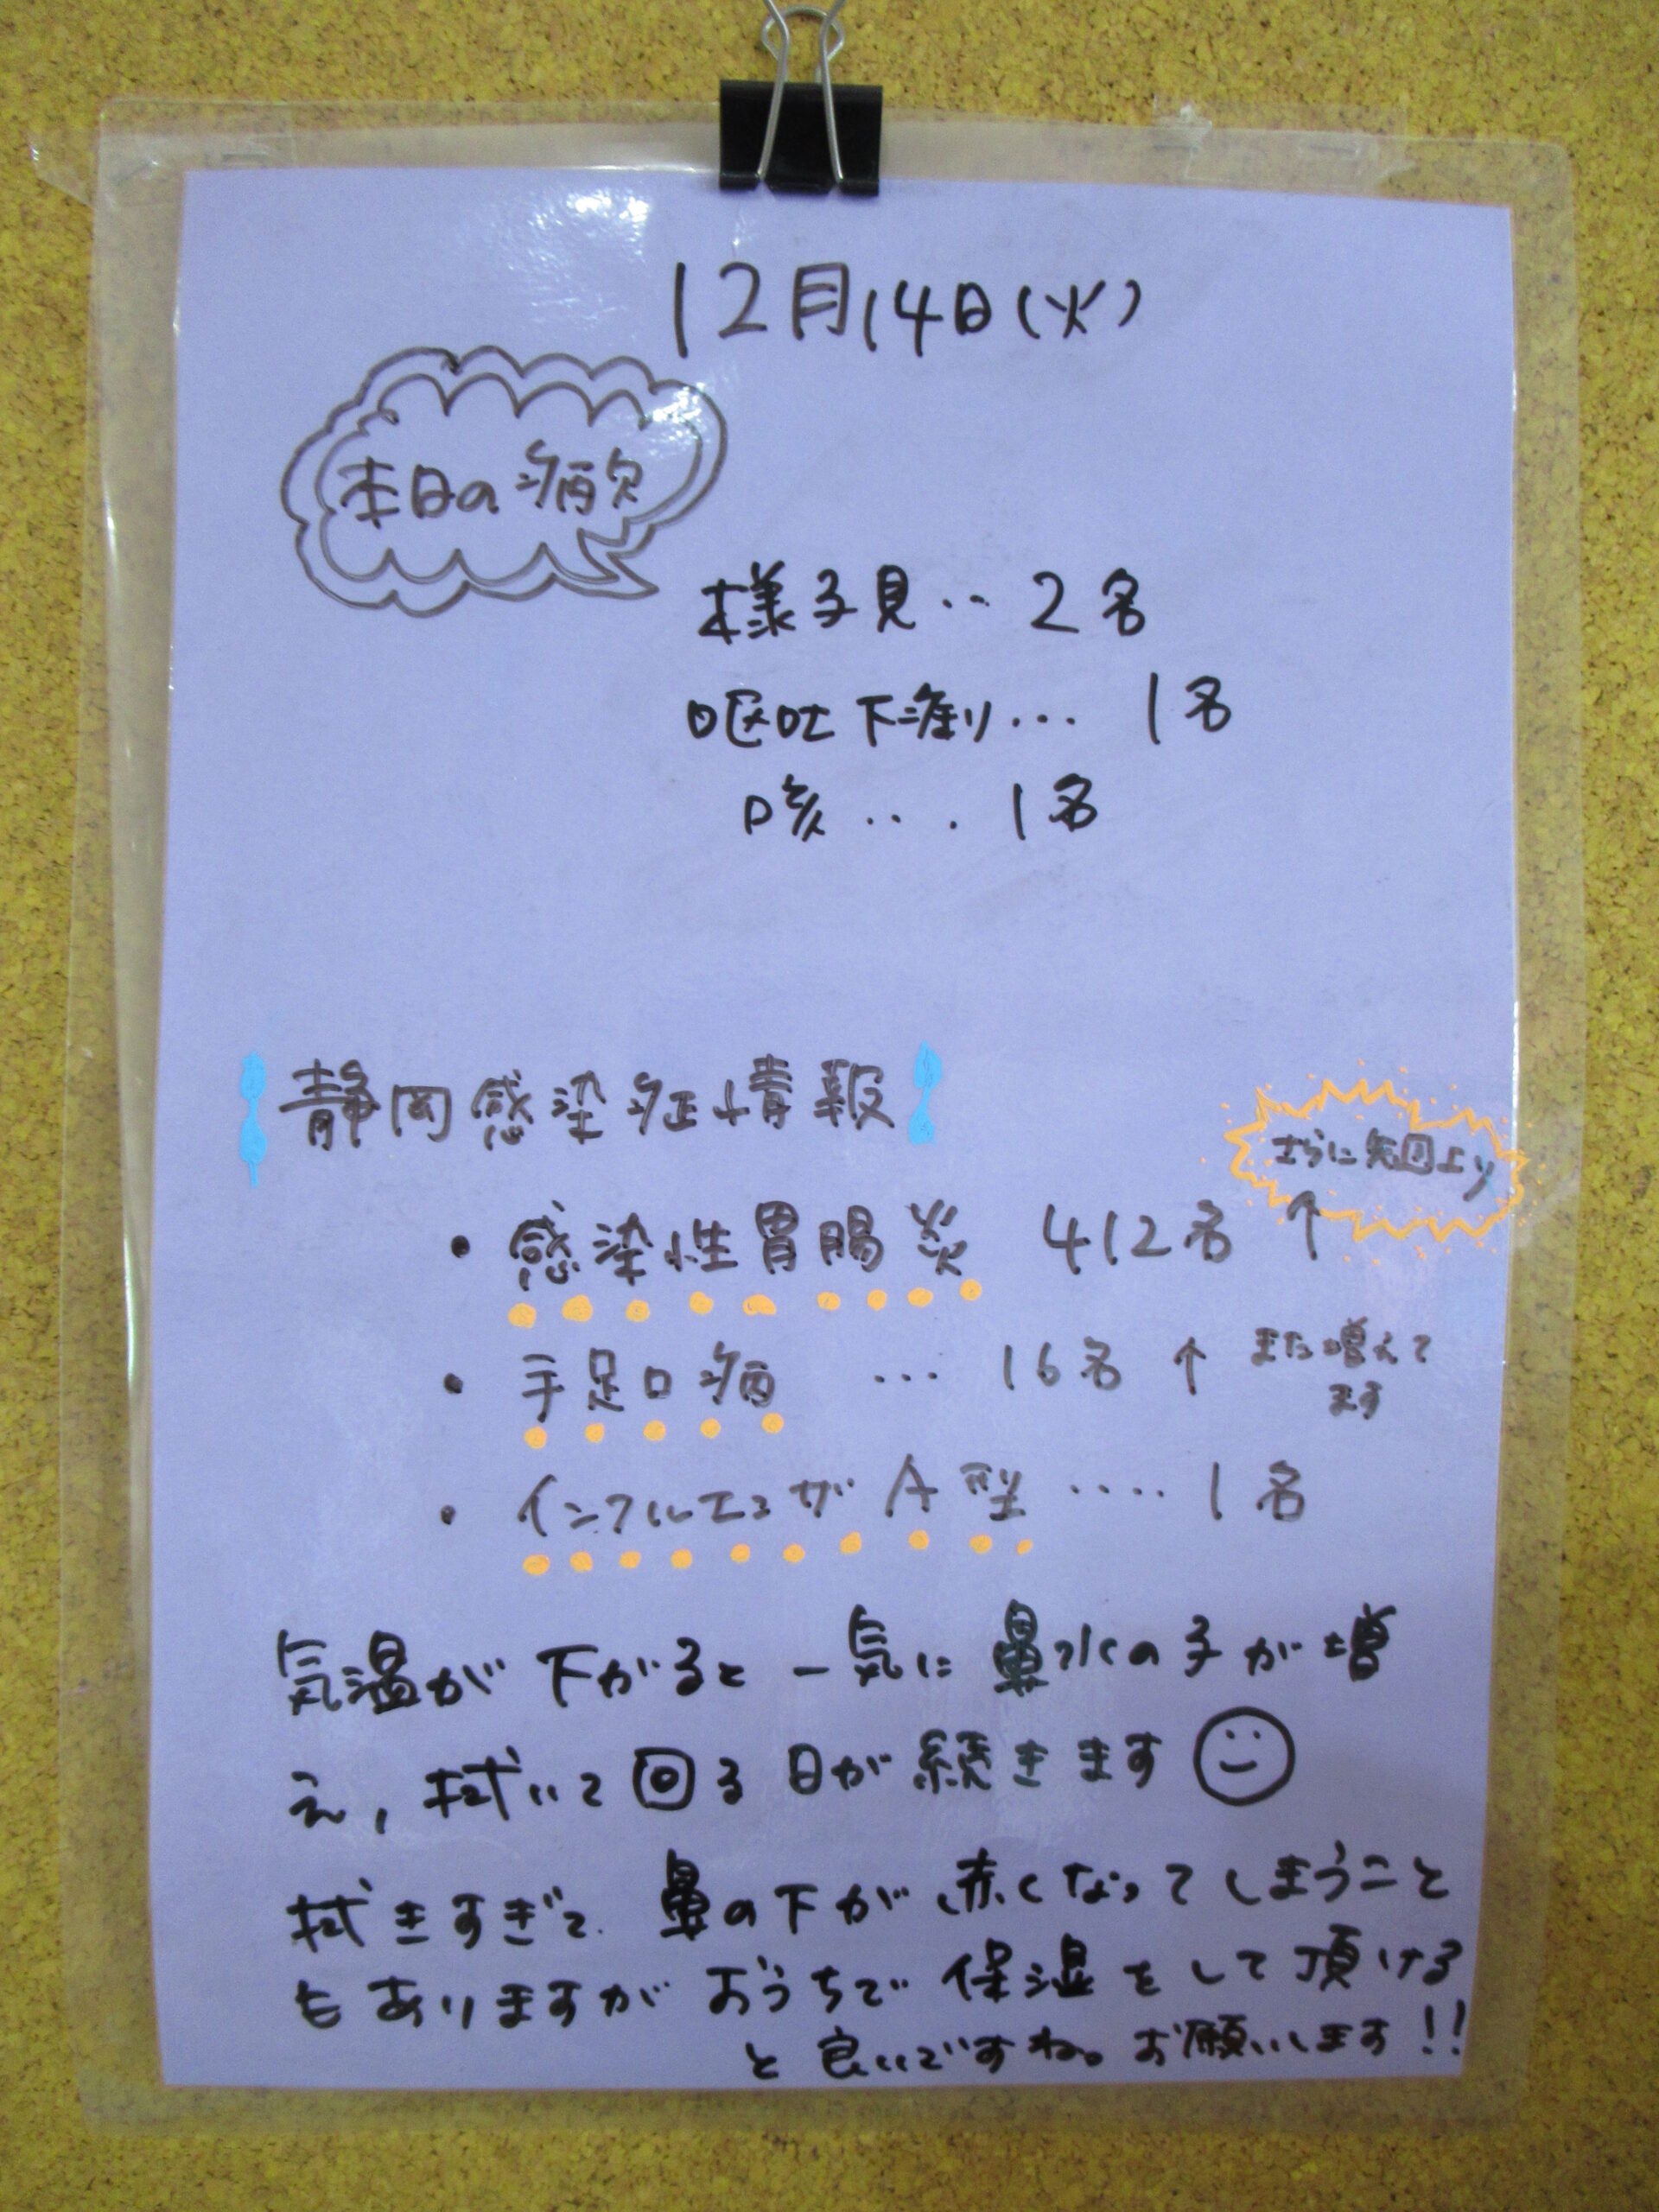 12月14日(火)
本日の病欠
様子見‥ 2名
嘔吐下痢り… 1名
咳‥‥ 1名
静岡感染症情報
さらに先回より
・感染性胃腸炎 412名 ↑
・手足口病 … 16名 ↑ また増えて
ます
・インフルエンザA型 ‥‥ 1名
気温が下がると一気に鼻水の子が増
え、拭いて回る日が続きます
拭きすぎて、鼻の下が赤くなってしまうこと
もありますがおうちで保湿をして頂ける
と良いですね。お願いします!!